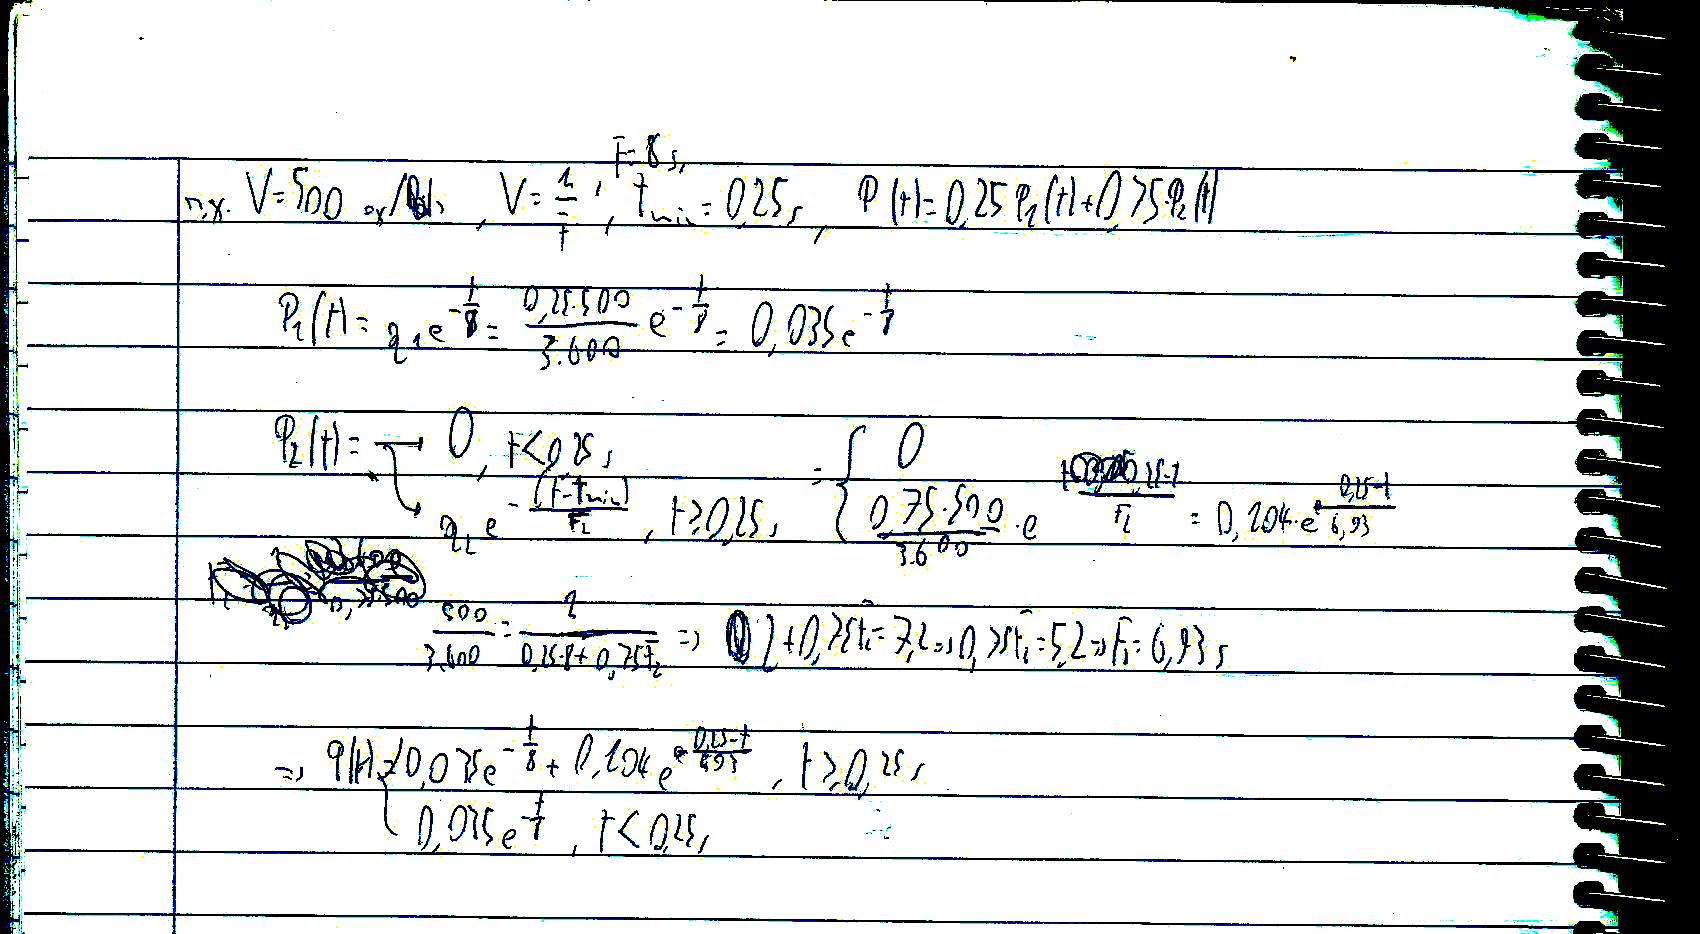 π.χ. V=500 οχ/h, V=1/t̄, t̄=8s, t_min=0,25s, P(t)=0,25P₁(t)+0,75P₂(t)
P₁(t)= q₁e^(-t/8) = (0,25·500)/(3.600) e^(-t/8) = 0,035e^(-t/8)
P₂(t)= → 0, t<0,25s = { 0
q₂e^(-(t-t_min)/t̄₂), t≥0,25s (0,75·500)/(3.600)·e^((0,25-t)/t̄₂) = 0,104·e^((0,25-t)/6,93)
500/3.600 = 1/(0,25·8+0,75t̄₂) => 2+0,75t̄₂=7,2 => 0,75t̄₂=5,2 => t̄₂=6,93s
=> P(t)= { 0,035e^(-t/8) + 0,104e^((0,25-t)/6,93), t≥0,25s
0,035e^(-t/8), t<0,25s